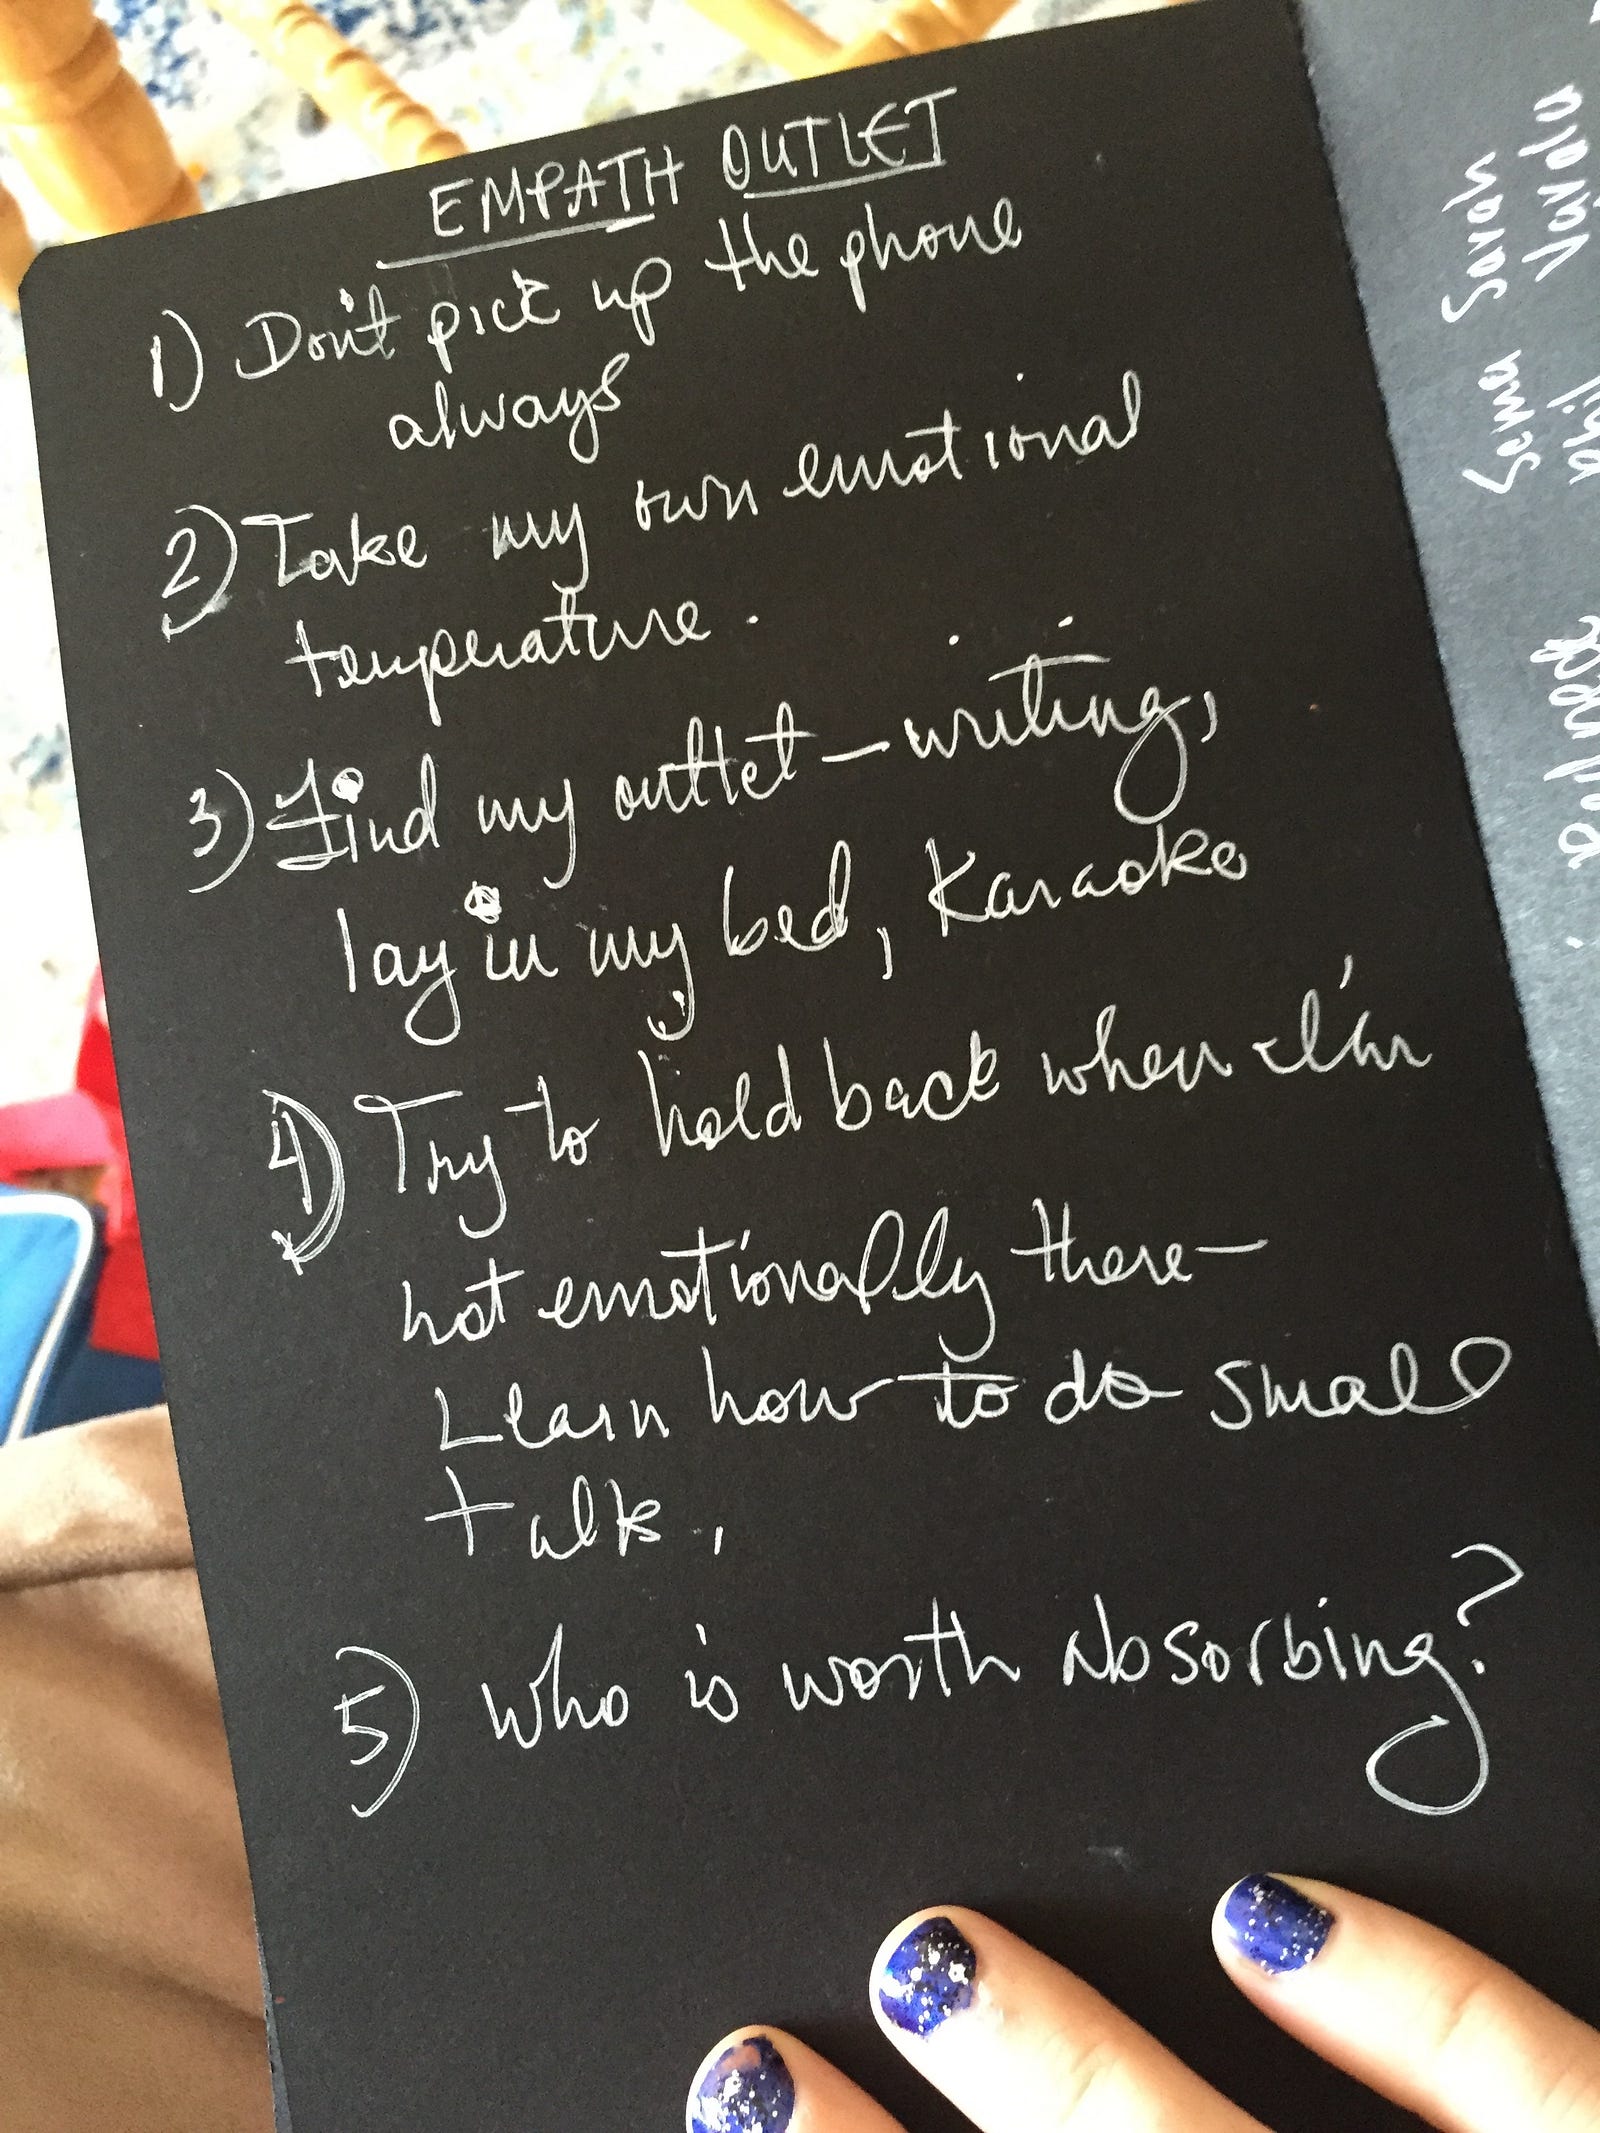 EMPATH OUTLET
1) Don't pick up the phone
always
2) Take my own emotional
temperature.
3) Find my outlet – writing,
lay in my bed, Karaoke
4) Try to hold back when I'm
not emotionally there –
Learn how to do small
talk.
5) Who is worth absorbing?
Sema Sarah
Phil